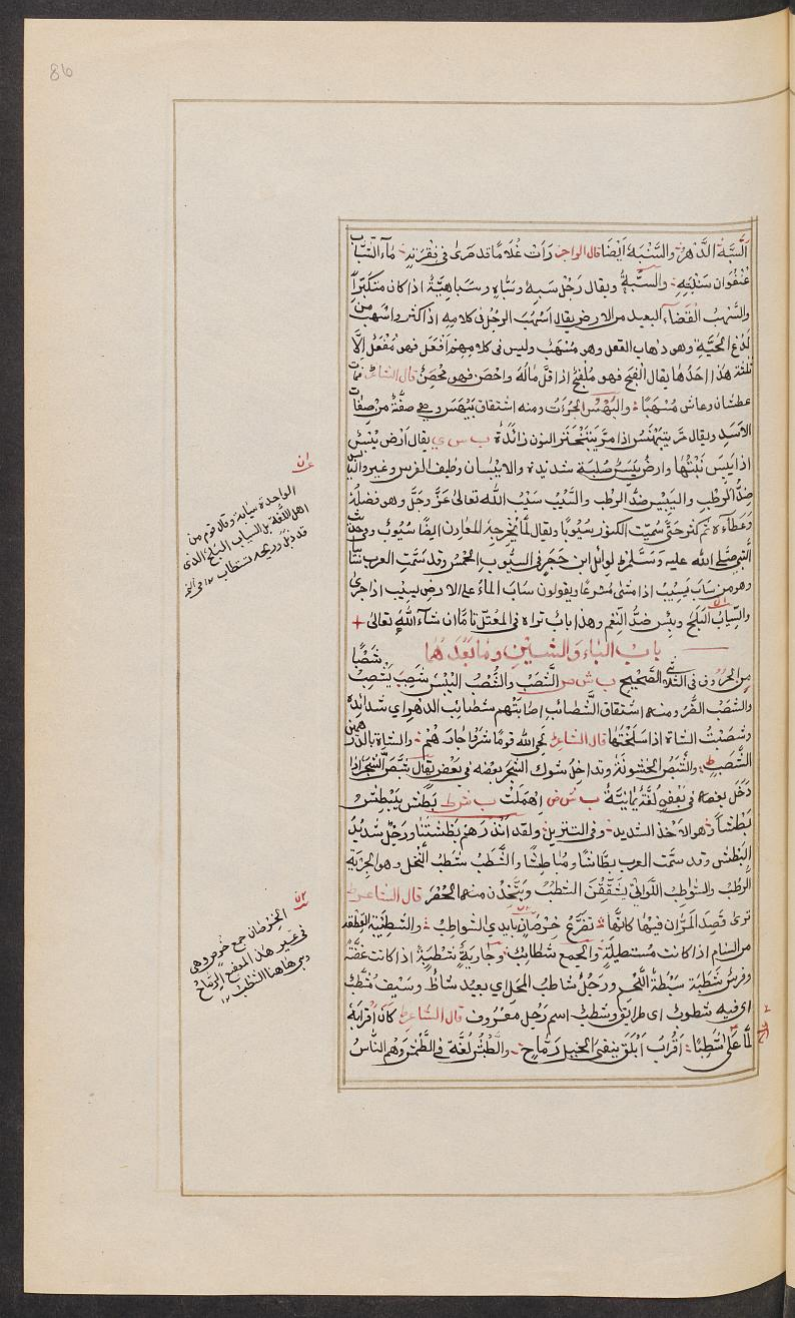 86
اَلسَّبَّة الدَّهْرُ والسَّنْبَة اَيْضًا قال الراجز رَأت غُلَامًا قد صَرىٰ فى فِقْرَتِهِ مَاءَ الشَّبَاب
عُنْفُوَان سَنْبَتِهِ والسَّبَهُ ويقال رَجُل سَبِهٌ وسَبَاهٍ وسَبَاهِيَةٌ اذا كان متكبّرًا
والسَّهْبُ الفَضَاء البعيد من الارض يقال اَسْهَبَ الرجُل فى كلامه اذا كثر واسهب من
لَدْغِ الحَيَّةِ وهو ذهاب العقل وهو مُسْهَبٌ وليس فى كلامهم اَفْعَل فهو مُفْعَل الَّا
ثلثة هٰذا احَدُها يقال اَلفَج فهو مُلْفَجٌ اذا قلَّ مَالُهُ واحْصَن فهو مُحْصَنٌ قال الشاعر مات
عطشان وعاش مُسْهَبًا والبَهْس الجُرْأت ومنه اشتقاق بَيْهَس وهى صفَةٌ من صفات
الاَسَدِ ويقال مَرَّ يَتَبَهْنَسُ اذا مَرَّ يَتَبَخْتَر النون زائدة ب س ى يقال اَرْض يَبَسٌ
اذا يَبِسَ نَبْتُهَا وارضٌ يَبْسٌ صُلبَة شديدة والايبسان وظيف الفرس وغيره واليابس
ضِدُّ الرطْبِ واليَبِيس ضدّ الرطب والسَّيْب سَيْب الله تعالىٰ عَزَّ وجَلَّ وهو فضلهُ
وعَطَآءه ثم كثر حَتّى سُمِّيَت الكنوز سُيُوبًا ويقال لما يخرج من المعادن ايضًا سُيُوب وفى حديث
النبى صَلى الله عليه وَسَلم لوائل ابن حَجَر فى السُّيُوب الخمس وقد سَمَّت العرب سَائبا
وهو من سَابَ يَسِيْبُ اذا مَشىٰ مُسْرعًا ويقولون سَابَ الماءُ على الارض يسيب اذا جرىٰ
والسَّيَابُ البَلَحُ وبِئْسَ ضدّ النِّعْم وهٰذا بابٌ تراه فى المعتلّ تامًّا ان شاءَ اللهُ تعالىٰ
باب البَاءِ وَالشّيْنِ وَمَا بَعْدَهُمَا
مِنَ الحُرُوف فى الثلاثى الصَّحِيْحِ ب ش ص الشَّصَب والشَّصْبُ اليَبْس شَصِبَ يَشْصَبُ شَصَبًا
والشصب الفَقْرُ ومنه اشتقاق الشَّصَائب اصابَتْهم شَصَائب الدهر اى شدائدهُ
وشَصَبْتُ الشاة اذا سَلَخْتَهَا قال الشاعر لَحَى الله قومًا شَرَوْا جارهُمْ والشاة بالدرهمين
الشَّصَب والشَّبَصُ الخشونَةُ وتداخلُ شوك الشجر بعضه فى بَعْض يقال تَشَبَّصَ الشَّجَرُ اذا
دَخَلَ بعضهُ فى بَعْضٍ لُغَةٌ يمَانِيَّةٌ ب ش ض اُهْمِلَتْ ب ش ط بَطَش يَبْطِش
بَطْشاً وهو الاخذ الشديد وفى التنزيل ولقد انذرهُمْ بطشتنا ورجُل شديْدُ
البَطْشِ وقد سَمَّت العرب بطَّاشًا ومُبَاطِشًا والشَّطْبُ شَطْبُ النخل وهو الجَرِيد
الرطْبُ والشواطِبُ اللّواتى يشَقِّقْنَ الشطْبَ ويتَّخذْن منه الحُصُرَ قال الشاعر
ترىٰ قِصَدَ المُرَّان فيها كانَّها تَذَرُّعُ خِرْصَانٍ بايدى الشواطِبُ والشطِيبَة القِطعَة
من السَّنام اذا كانت مُستطيلَةً والجمع شطائِب وجَاريَةٌ شَطْبَةٌ اذا كانت غَضَّةً
وفرسٌ شَطْبَة سَبْطَةُ اللَّحْم ورَجُلٌ شَاطِبُ المحلِ اى بعيد شاطٌّ وسَيْفٌ مُشَطَّبٌ
اى فيه شطوبٌ اى طرائق وشَطِبٌ اسم رجل معرُوف قال الشاعر كاَنّ اَقْرابَهُ
لمّا عَلىٰ شَطِبًا اَقْرَابُ اَبْلَقَ يَنفى الخيلَ رَمَّاحِ والطَّبْشُ لُغَةٌ فى الطَّمْش وَهُم النَّاسُ
الواحدة سيابة وقال قوم من
اهل اللغة بل السياب البلح الذى
الخرصان جمع خرص وهى
فى غير هذا الموضع الرماح